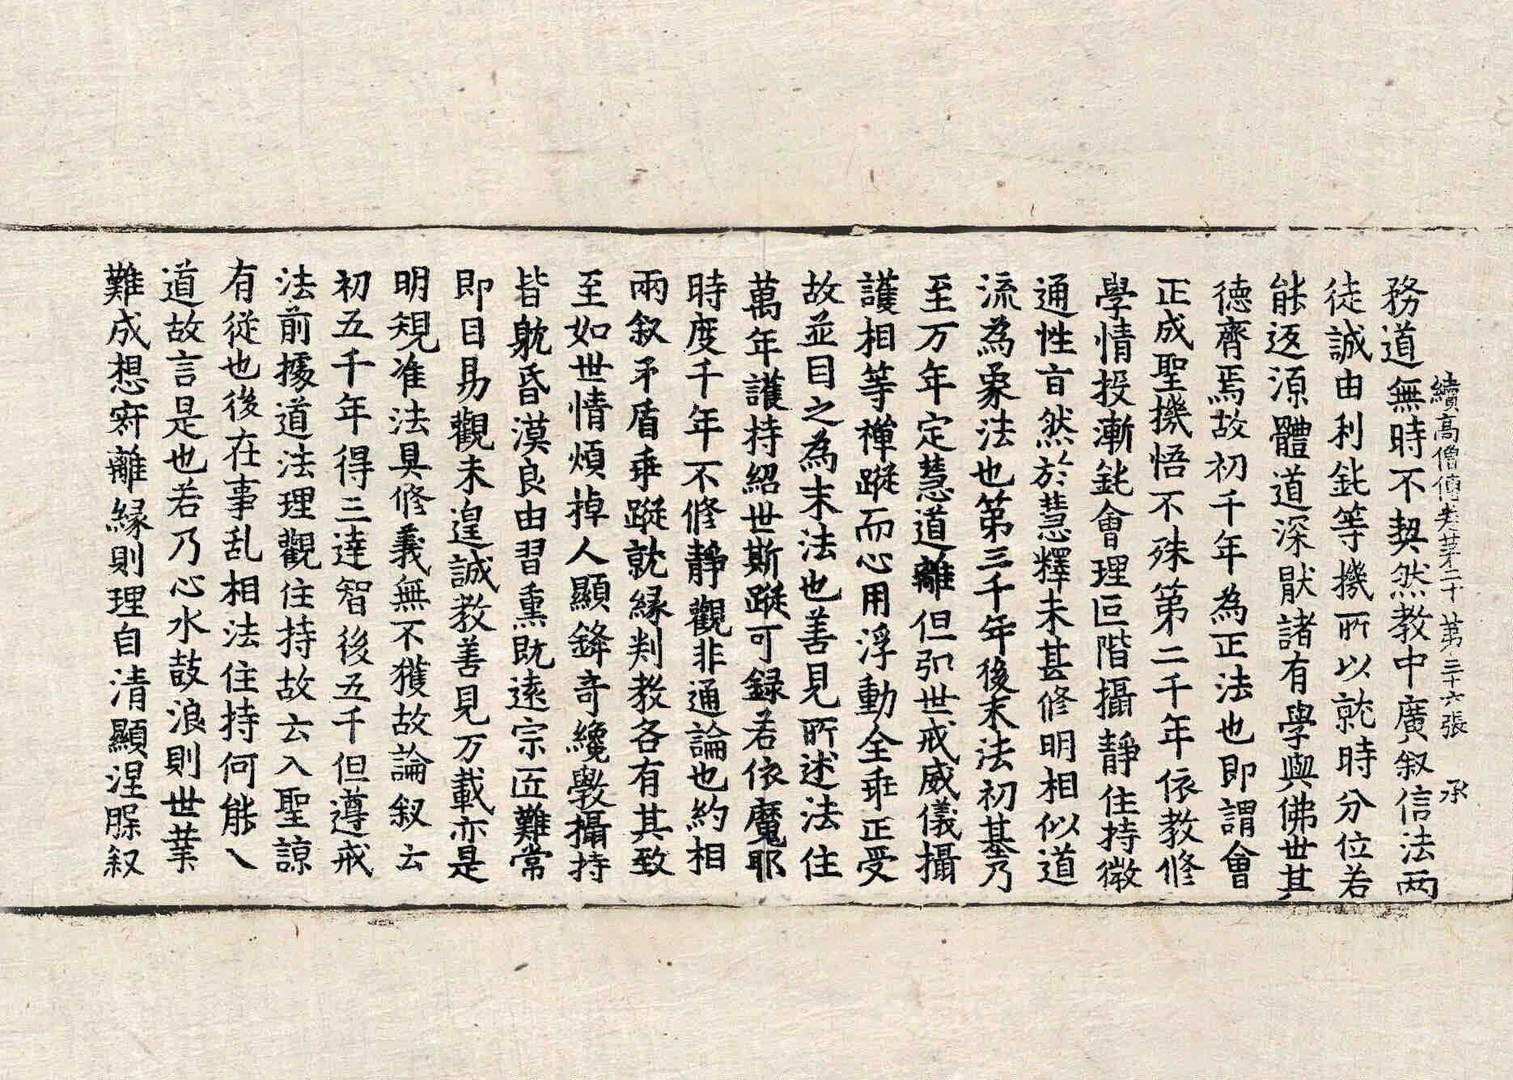 續高僧傳卷苐二十 第三十六張 承
務道無時不契然教中廣叙信法两
徒誠由利鈍等機所以就時分位若
能返源體道深猒諸有學與佛世其
德齊焉故初千年為正法也即謂會
正成聖機悟不殊第二千年依教修
學情投漸鈍會理叵階攝靜住持微
通性盲然於慧釋未甚修明相似道
流為𧰼法也第三千年後末法初基乃
至万年定慧道離但弘世戒威儀攝
護相等禪蹤而心用浮動全乖正受
故並目之為末法也善見所述法住
萬年護持紹世斯蹤可録若依魔耶
時度千年不修靜觀非通論也約相
兩叙矛盾乖蹤就緣判教各有其致
至如世情煩掉人顯鋒奇纔斅攝持
皆躭昏漠良由習熏既遠宗匠難常
即目易觀未遑誠教善見万載亦是
明䂓准法具修義無不獲故論叙云
初五千年得三達智後五千但遵戒
法前據道法理觀住持故云入聖諒
有從也後在事乱相法住持何能入
道故言是也若乃心水鼓浪則世業
難成想寂離緣則理自清顯涅槃叙